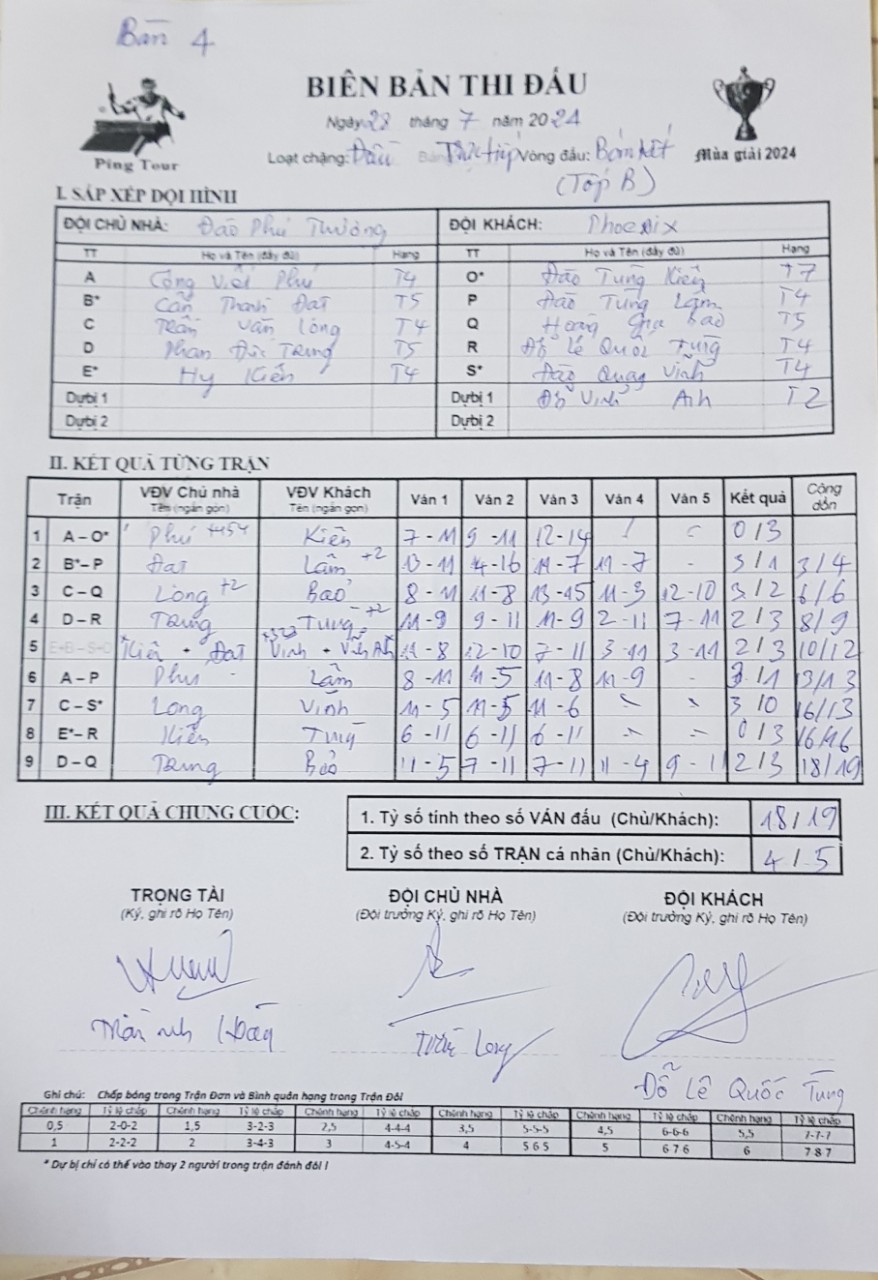 Bàn 4
BIÊN BẢN THI ĐẤU
Ping Tour
Ngày 28 tháng 7 năm 2024
Loạt chặng: Đấu Trực tiếp Vòng đấu: Bán kết
Mùa giải 2024
(Top B)
I. SẮP XẾP DỌI HÌNH
ĐỘI CHỦ NHÀ: Đào Phú Thường ĐỘI KHÁCH: Phoenix
TT Họ và Tên (đầy đủ) Hạng TT Họ và Tên (đầy đủ) Hạng
A Công Viết Phú T4 O* Đào Tùng Kiên T7
B* Cấn Thành Đạt T5 P Đào Tùng Lâm T4
C Trần Văn Long T4 Q Hoàng Gia Bảo T5
D Phan Đức Trung T5 R Đỗ Lê Quốc Tùng T4
E* Hy Kiên T4 S* Đào Quang Vinh T4
Dự bị 1 Dự bị 1 Đỗ Vinh Anh T2
Dự bị 2 Dự bị 2
II. KẾT QUẢ TỪNG TRẬN
Trận VĐV Chủ nhà VĐV Khách Ván 1 Ván 2 Ván 3 Ván 4 Ván 5 Kết quả Cộng dồn
Tên (ngắn gọn) Tên (ngắn gọn)
1 A – O* Phú +454 Kiên 7 - 11 9 - 11 12 - 14 0 / 3
2 B* – P Đạt Lâm +2 13 - 11 4 - 16 11 - 7 11 - 7 - 3 / 1 3/4
3 C – Q Long +2 Bảo 8 - 11 11 - 8 13 - 15 11 - 3 12 - 10 3 / 2 6/6
4 D – R Trung Tùng +2 11 - 9 9 - 11 11 - 9 2 - 11 7 - 11 2 / 3 8/9
5 E+B – S+O Kiên + Đạt +323 Vinh + Vinh Anh 11 - 8 12 - 10 7 - 11 3 - 11 3 - 11 2 / 3 10/12
6 A – P Phú - Lâm 8 - 11 11 - 5 11 - 8 11 - 9 - 3 / 1 13/13
7 C – S* Long Vinh 11 - 5 11 - 5 11 - 6 3 / 0 16/13
8 E* – R Kiên Tùng 6 - 11 6 - 11 6 - 11 0 / 3 16/16
9 D – Q Trung Bảo 11 - 5 7 - 11 7 - 11 11 - 4 9 - 11 2 / 3 18/19
III. KẾT QUẢ CHUNG CUỘC:
1. Tỷ số tính theo số VÁN đấu (Chủ/Khách): 18 / 19
2. Tỷ số theo số TRẬN cá nhân (Chủ/Khách): 4 / 5
TRỌNG TÀI ĐỘI CHỦ NHÀ ĐỘI KHÁCH
(Ký, ghi rõ Họ Tên) (Đội trưởng Ký, ghi rõ Họ Tên) (Đội trưởng Ký, ghi rõ Họ Tên)
Long
Đỗ Lê Quốc Tùng
Ghi chú: Chấp bóng trong Trận Đơn và Bình quân hạng trong Trận Đôi
Chênh hạng Tỷ lệ chấp Chênh hạng Tỷ lệ chấp Chênh hạng Tỷ lệ chấp Chênh hạng Tỷ lệ chấp Chênh hạng Tỷ lệ chấp Chênh hạng Tỷ lệ chấp
0,5 2-0-2 1,5 3-2-3 2,5 4-4-4 3,5 5-5-5 4,5 6-6-6 5,5 7-7-7
1 2-2-2 2 3-4-3 3 4-5-4 4 5 6 5 5 6 7 6 6 7 8 7
* Dự bị chỉ có thể vào thay 2 người trong trận đánh đôi !